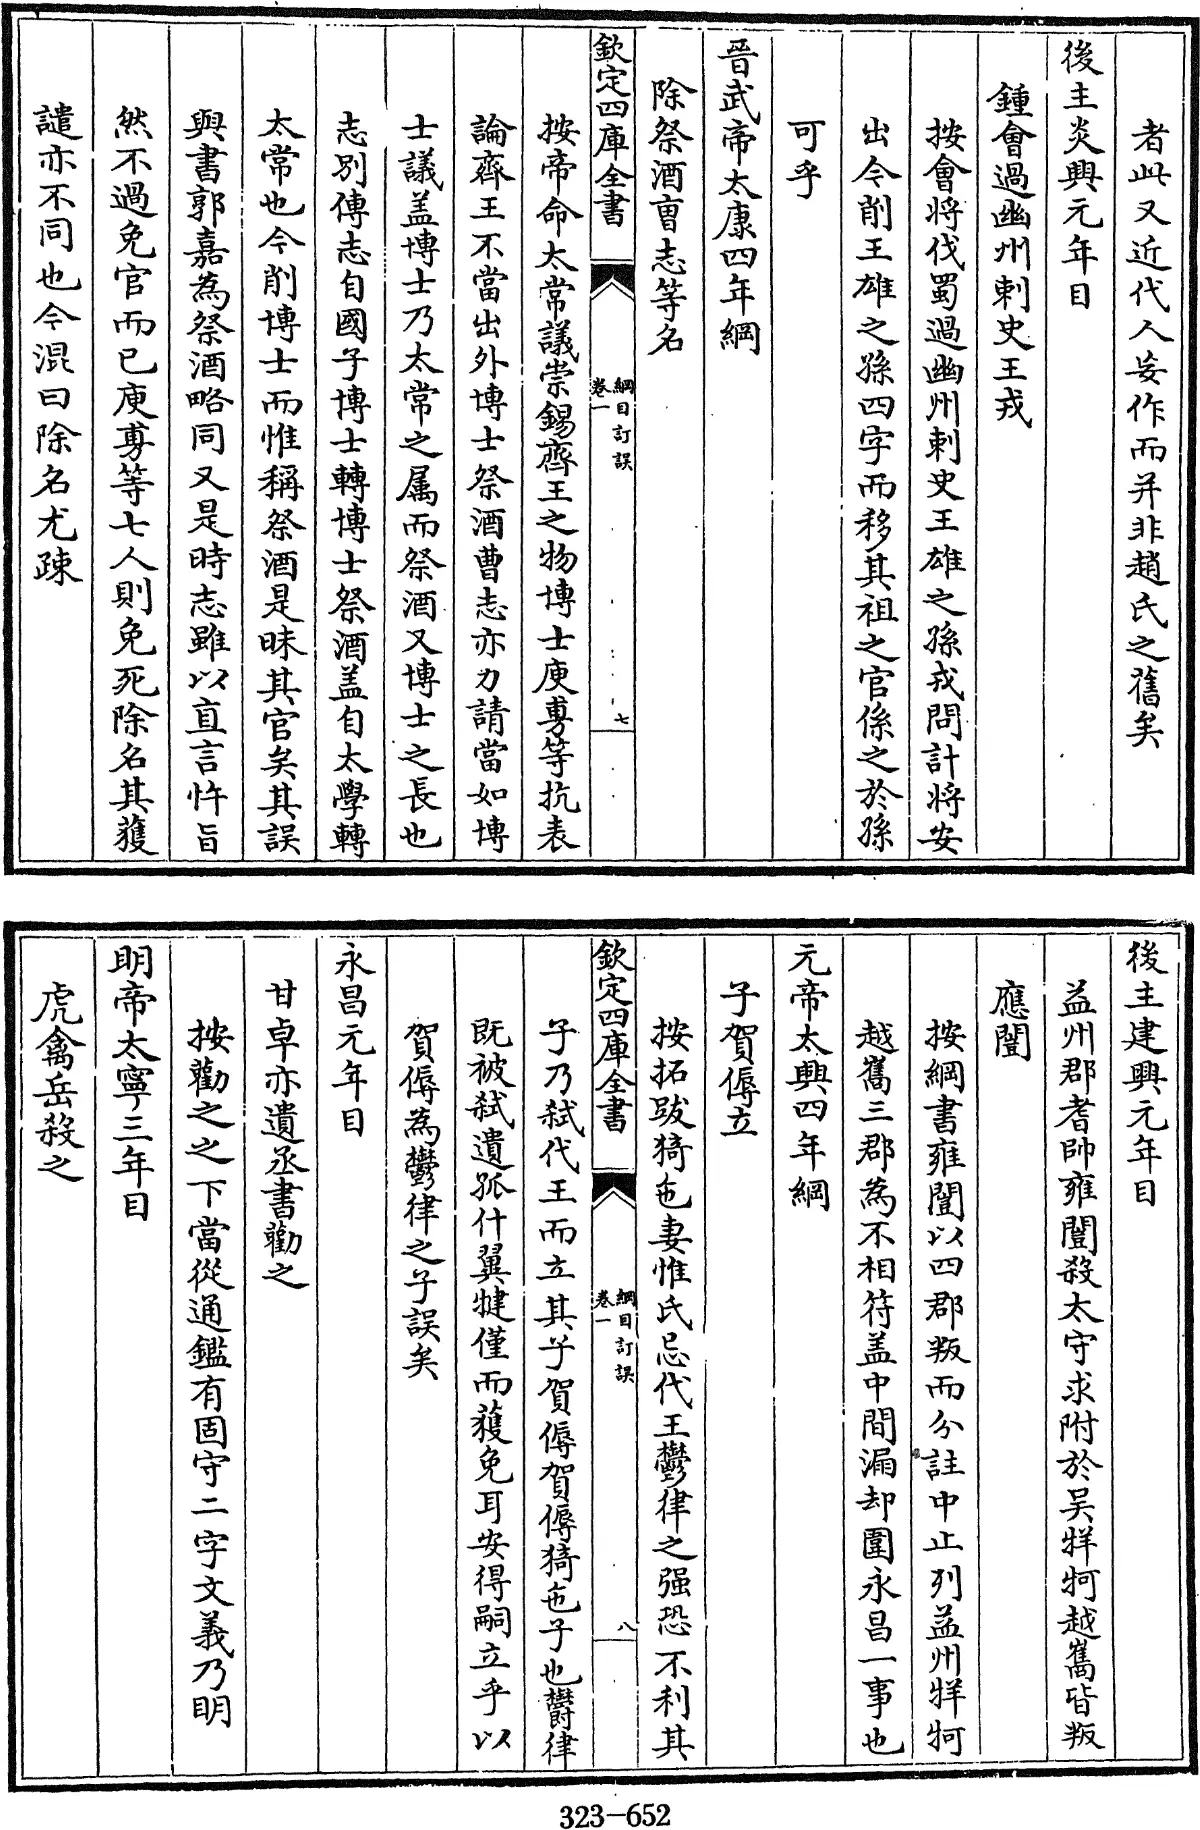 者此又近代人妄作而并非趙氏之舊矣
後主炎興元年目
鍾會過幽州刺史王戎
按會將伐蜀過幽州刺史王雄之孫戎問計將安
出今削王雄之孫四字而移其祖之官係之於孫
可乎
晉武帝太康四年綱
除祭酒曹志等名
欽定四庫全書
綱目訂誤
卷一
七
按帝命太常議崇錫齊王之物博士庾旉等抗表
論齊王不當出外博士祭酒曹志亦力請當如博
士議盖博士乃太常之属而祭酒又博士之長也
志別傳志自國子博士轉博士祭酒盖自太學轉
太常也今削博士而惟稱祭酒是昧其官矣其誤
與書郭嘉為祭酒略同又是時志雖以直言忤旨
然不過免官而已庾旉等七人則免死除名其獲
譴亦不同也今混曰除名尤踈
後主建興元年目
益州郡耆帥雍闓殺太守求附於吴牂牁越嶲皆叛
應闓
按綱書雍闓以四郡叛而分註中止列益州牂牁
越嶲三郡為不相符盖中間漏却圍永昌一事也
元帝太興四年綱
子賀傉立
按拓跋猗㐌妻惟氏忌代王鬱律之强恐不利其
欽定四庫全書
綱目訂誤
卷一
八
子乃弑代王而立其子賀傉賀傉猗㐌子也欝律
既被弑遺孤什翼犍僅而獲免耳安得嗣立乎以
賀傉為鬱律之子誤矣
永昌元年目
甘卓亦遺丞書勸之
按勸之之下當從通鑑有固守二字文義乃明
明帝太寧三年目
虎禽岳殺之
323-652